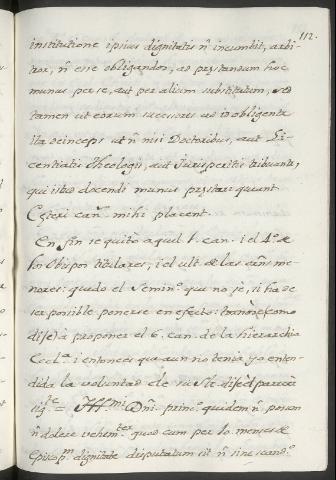 112.
institutione ipsius dignitatis ñ incumbit, arbi-
tror, ñ esse obligandos, ad prestandum hoc
munus per se, aut per alium substitutum, sed
tamen ut eorum sucesores ad id obligentur
ita deinceps ut ñ nisi Doctoribus, aut Li-
centiatis Theologis, aut Jurisperitis tribuantur,
qui istud docendi munus prestari queant
Cęteri can.ˢ mihi placent.
En fin se quitò aquel 1. can. i el 4.º de
los Obispos titulares, i el ult. de las me-
nores: quedo el Semin.º que no sè, si ha de
ser posible ponerse en efecto: como
à proponer el 6. can. de la hierarchia
Eccl.ª i entonces que aun no tenia yo enten-
dida la voluntad de su dixe el parecer
sig.te = Ill.mi Dñi. princ.º quidem ñ possum
ñ dolere vehem.ter quod cum per 10. menses de
Episcop.m dignitate disputatum sit ñ sine scand.º